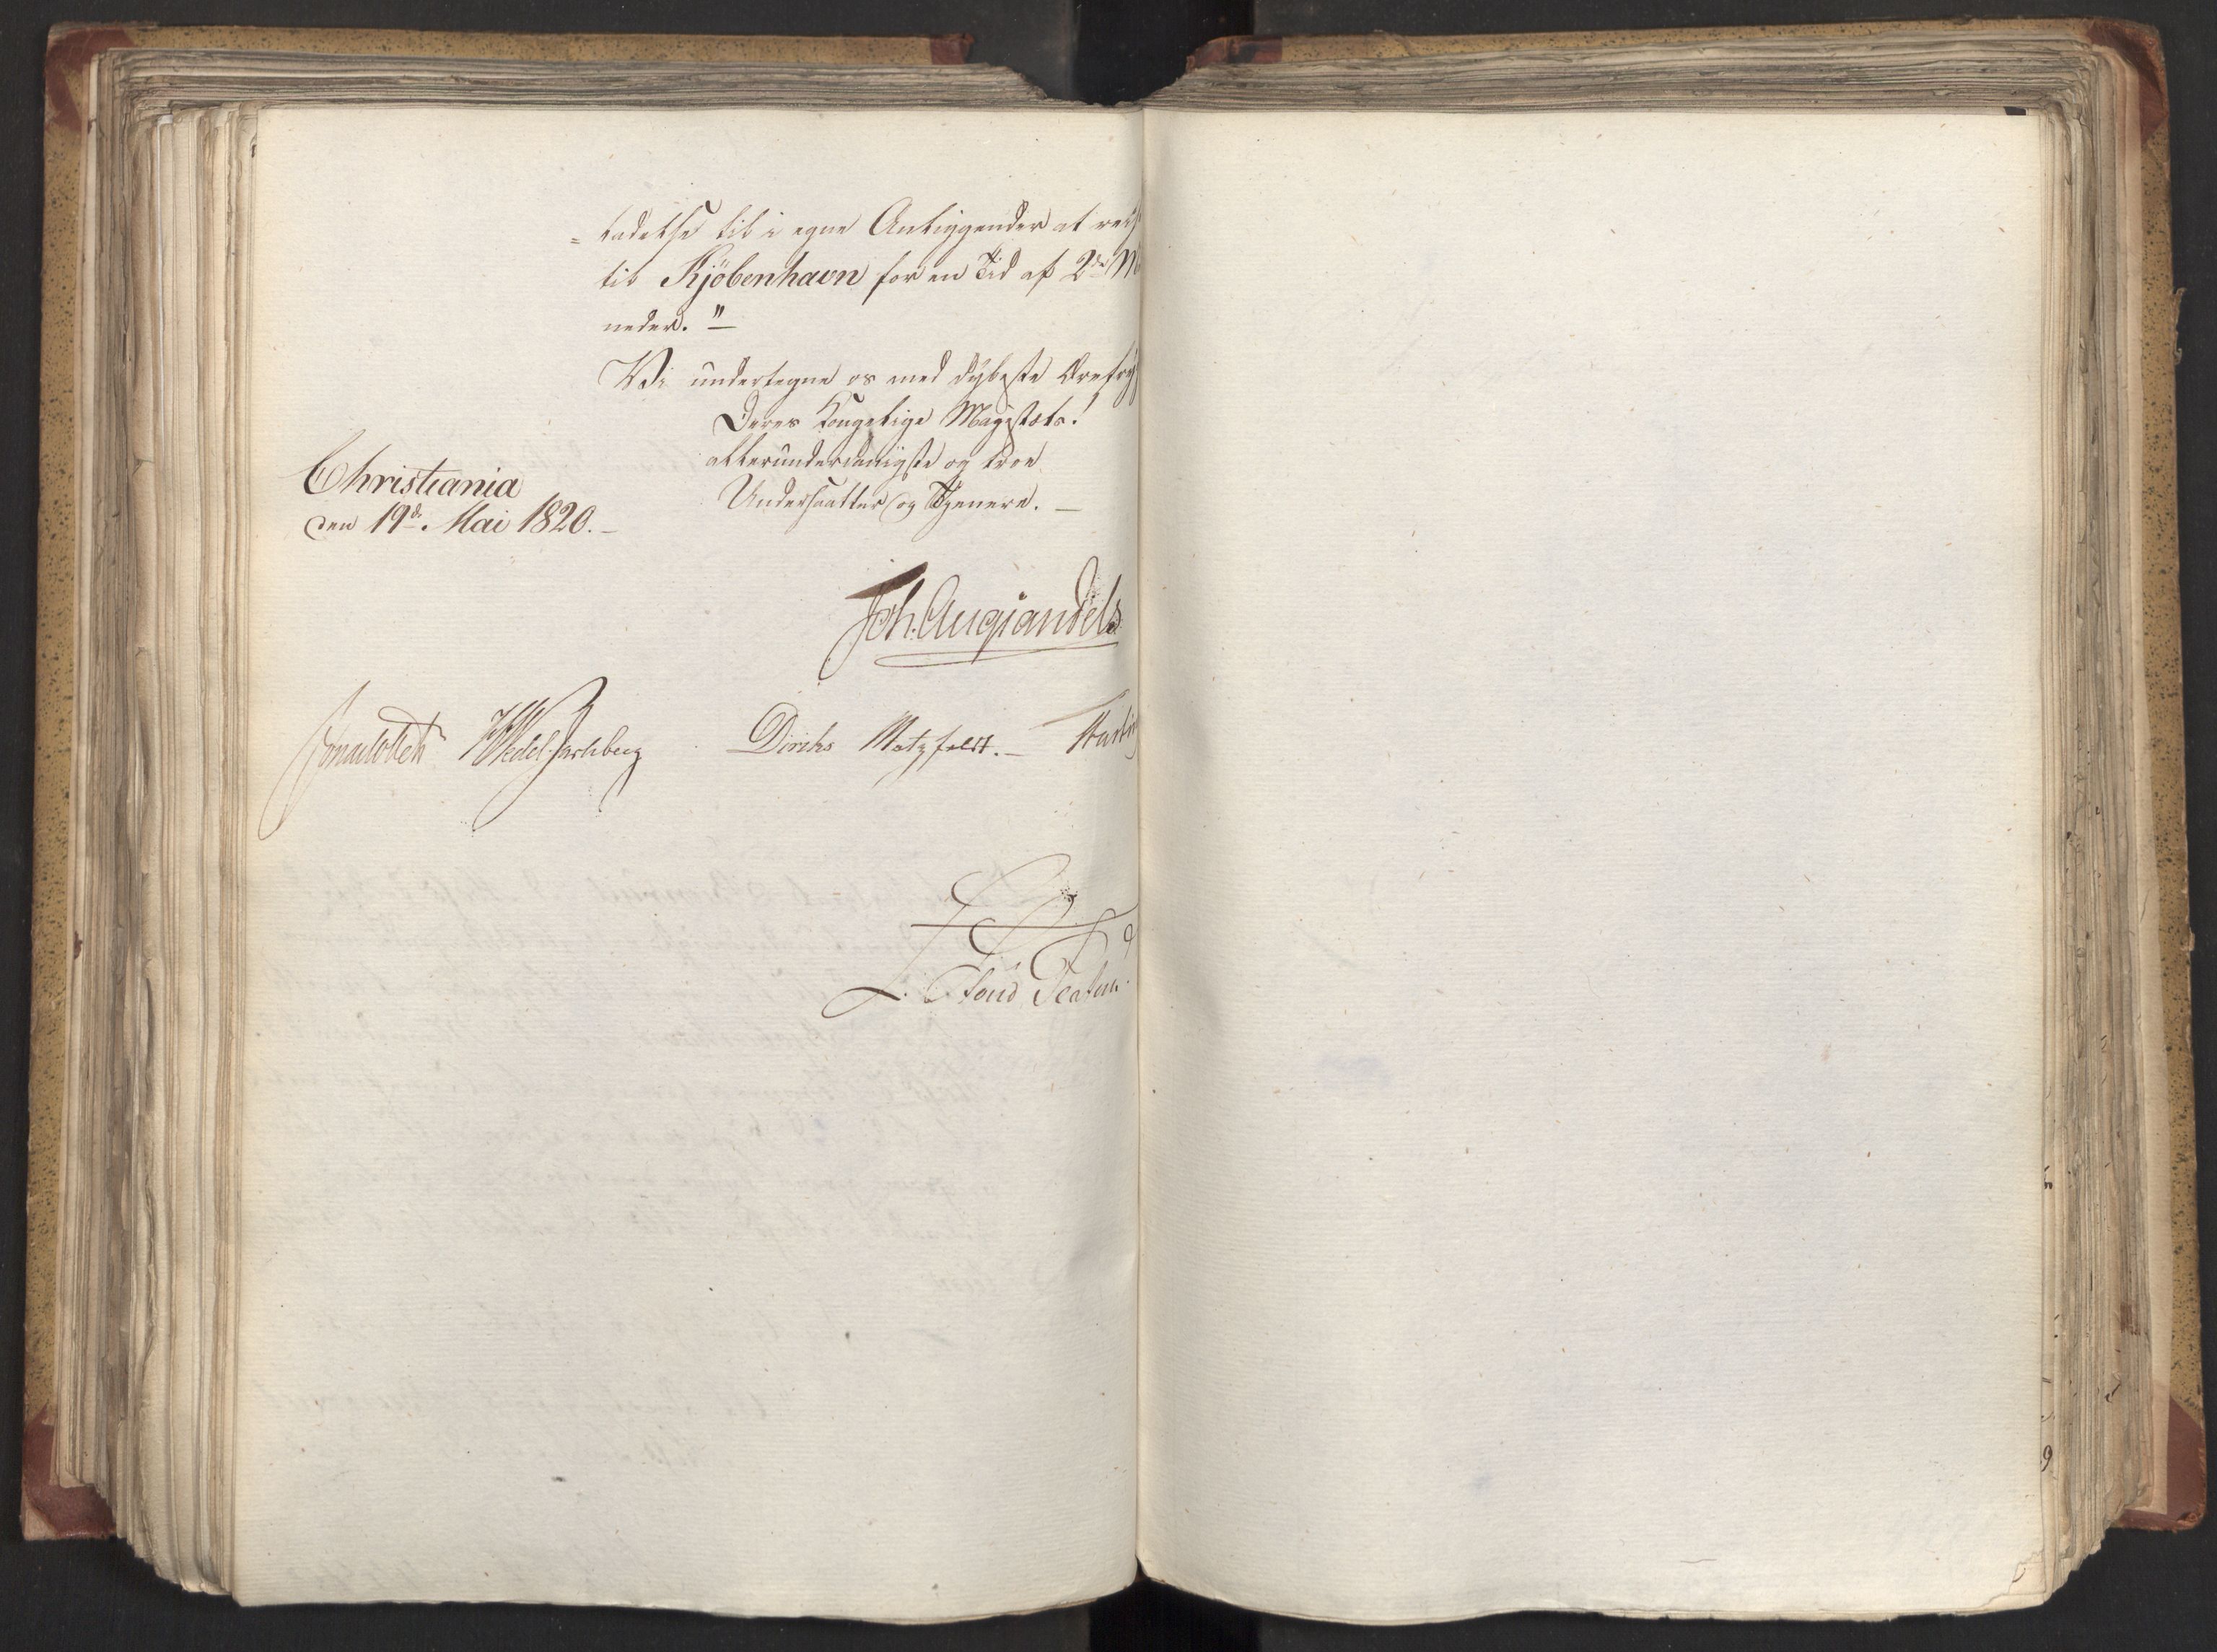 =ladelse til i egne Anliggender at reis
til Kjöbenhavn for en Tid af 2de M
neder."
Vi undertegne os med dybeste Ærefry
Deres Kongelige Majestæts!
allerunderdanigste og troe
Undersaatter og Tjenere. —
Christiania
den 19de Mai 1820. —
Joh. Aug Sandels
Jonas Collett HWedel Jarlsberg Diriks Motzfeldt. —
L. Stoud Platou